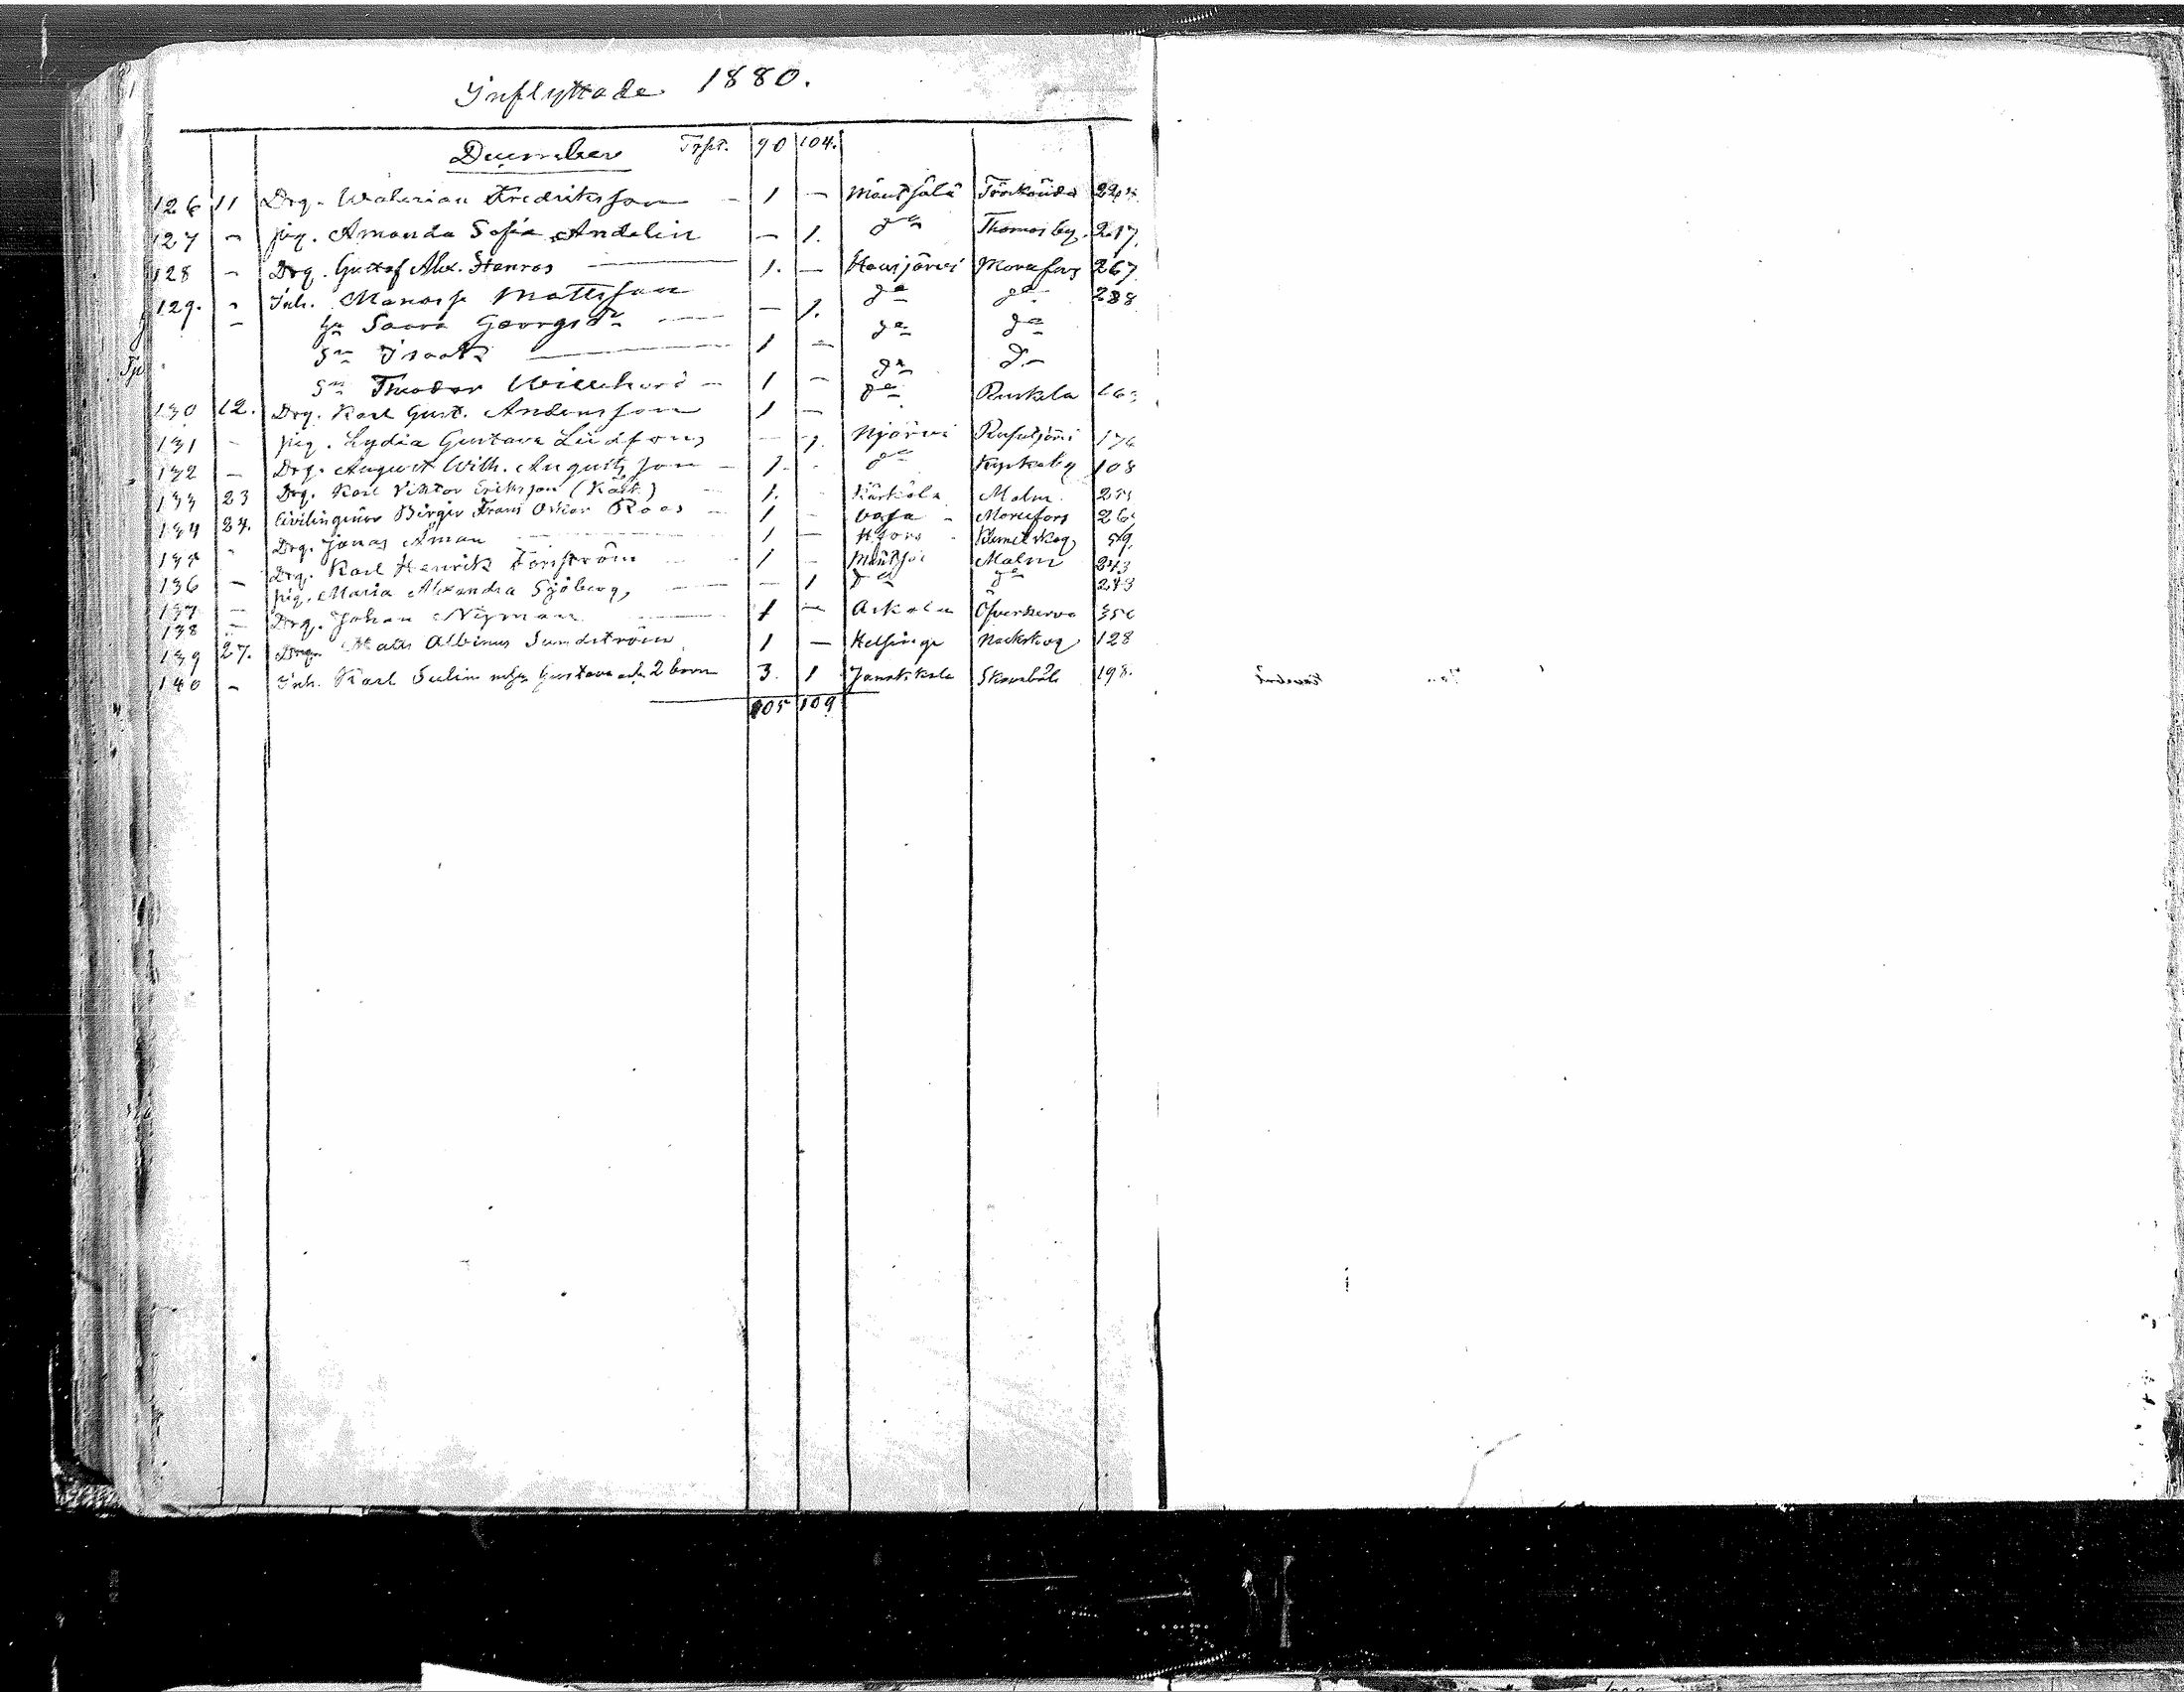 Inflyttade 1880.
December Trpt. 90 104.
126 11 Drg. Walerian Fredriksson — 1 — Mäntsälä Träskända 224
127 — pig. Amanda Sofia Andelin — 1. d:o Thomasby 217
128 — Drg. Gustaf Alex. Stenros — 1. — Hausjärvi Morafors 267
129. — Inh. Manasse Mattsson d:o d:o 288
— h:u Saara Georgsd:r — — 1. d:o d:o
s:n Isaak — 1 — d:n D:o
s:n Theodor Willehard — 1 —
130 12. Drg. Karl Gust. Andersson 1 — d:o Ruskela
131 — pig. Lydia Gustava Lindfors — 1. Njärvi 174
132 — Drg. August Wilh. Augustsson — 1. d:o Kyrkoby 108
133 23 Drg. Karl Viktor Eriksson (Käck) — 1. Kärkölä Malm
134 24. Civilingeniör Birger Frans Oskar Roos — 1 — Vasa — Morafors
135 Drg. Jonas Åman 1 — Klemetskog 59
136 — Drg. Karl Henrik Forsström 1 — Mäntsä Malm 243
137 — pig. Maria Alexandra Sjöberg, — 1 d:o d:o 243
138 — Drg. Johan Nyman 1 — Askola Öfverkervo
139 27. Drg. Mats Albinus Sundström 1 — Helsinge Nackskog 128
140 — Inh. Karl Sulin m. h:u Gustava och 2 barn 3. 1 Janakkala Skavaböle 198.
105 109